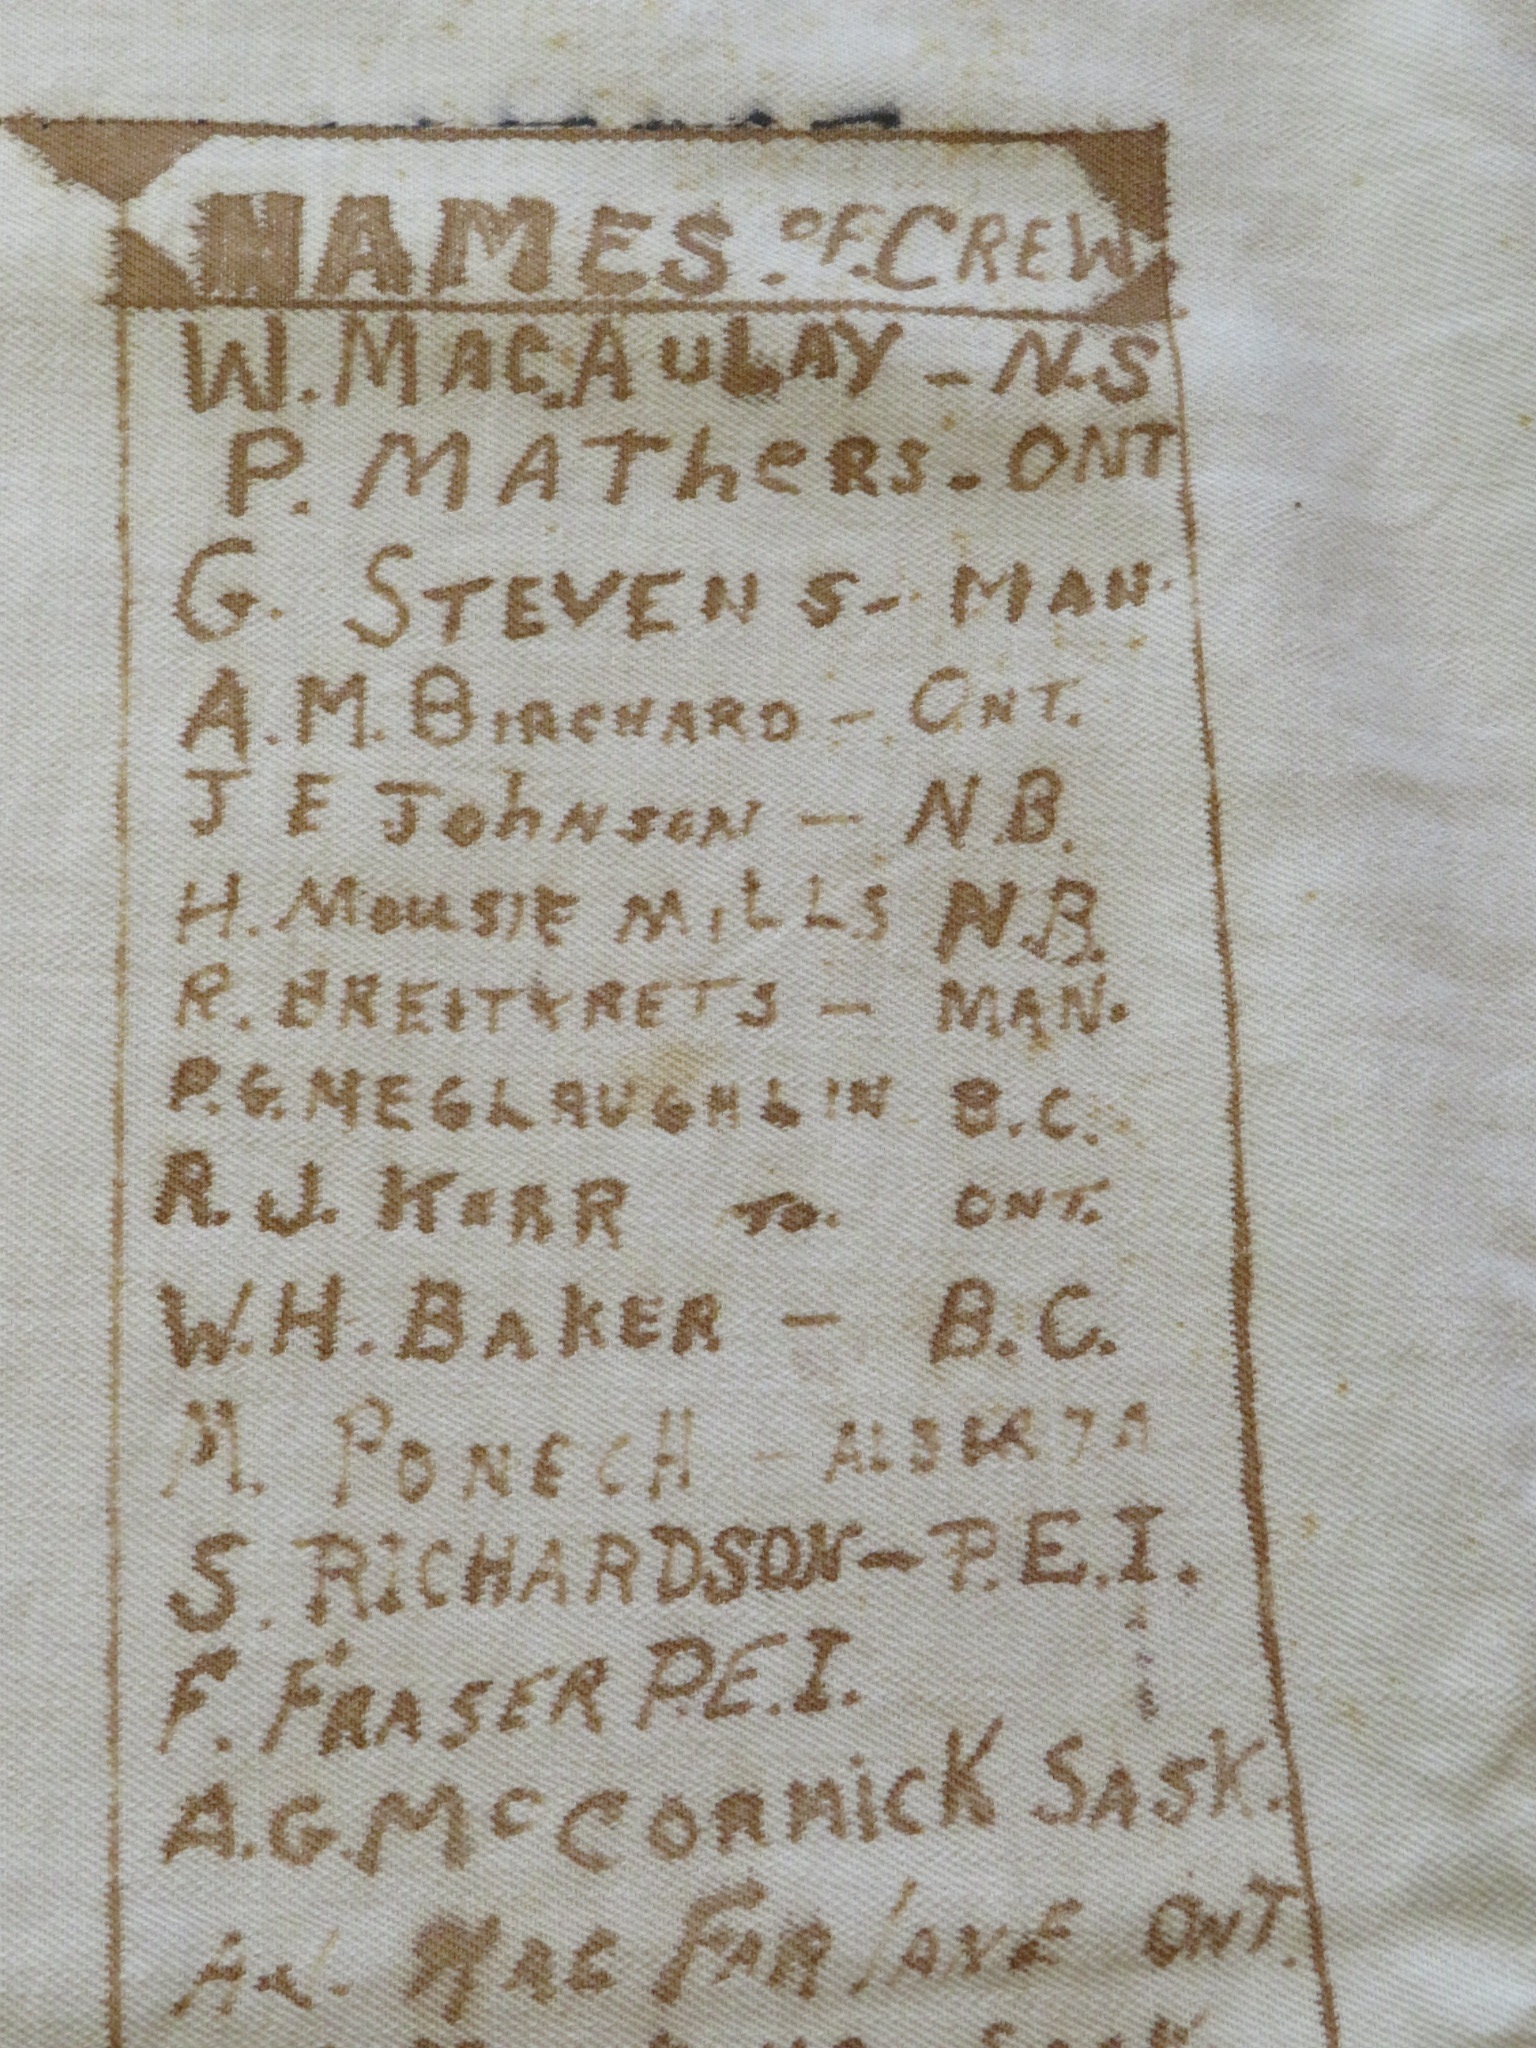 NAMES. OF. CREW
W. MACAULAY - N.S
P. MATheRS - ONT
G. STEVENS - MAN.
A.M. BIRCHARD - ONT.
J E JOhNSON - N.B.
H. MOUSIE MILLS N.B.
R. - MAN.
P.G. MEGLAUGHLIN B.C.
R.J. KERR TO. ONT.
W.H. BAKER - B.C.
M. PONECH - ALBERTA
S. RiCHARDSON - P.E.I.
F. FRASER P.E.I.
A.G. McCORMicK SASK.
MAC FARlANE ONT.